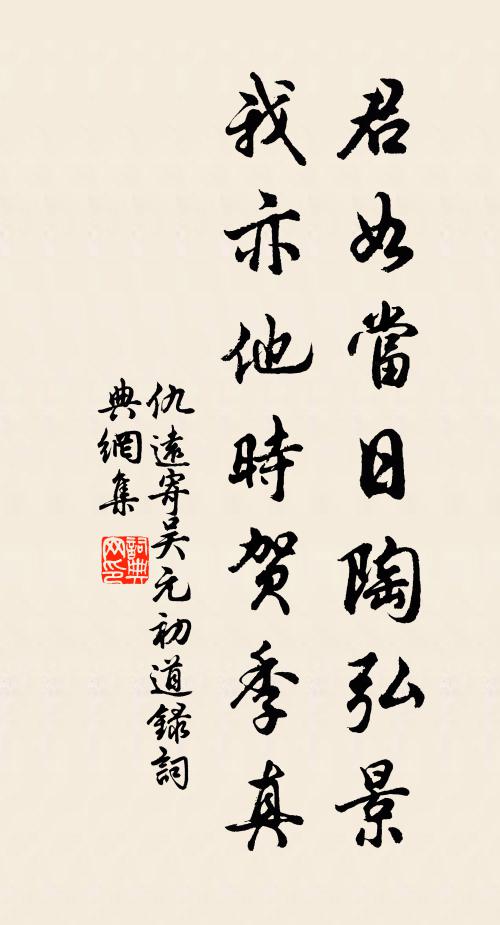 君如當日陶弘景
我亦他時賀季真
仇遠寄吴元初道録詞
典網集
詞典
网印